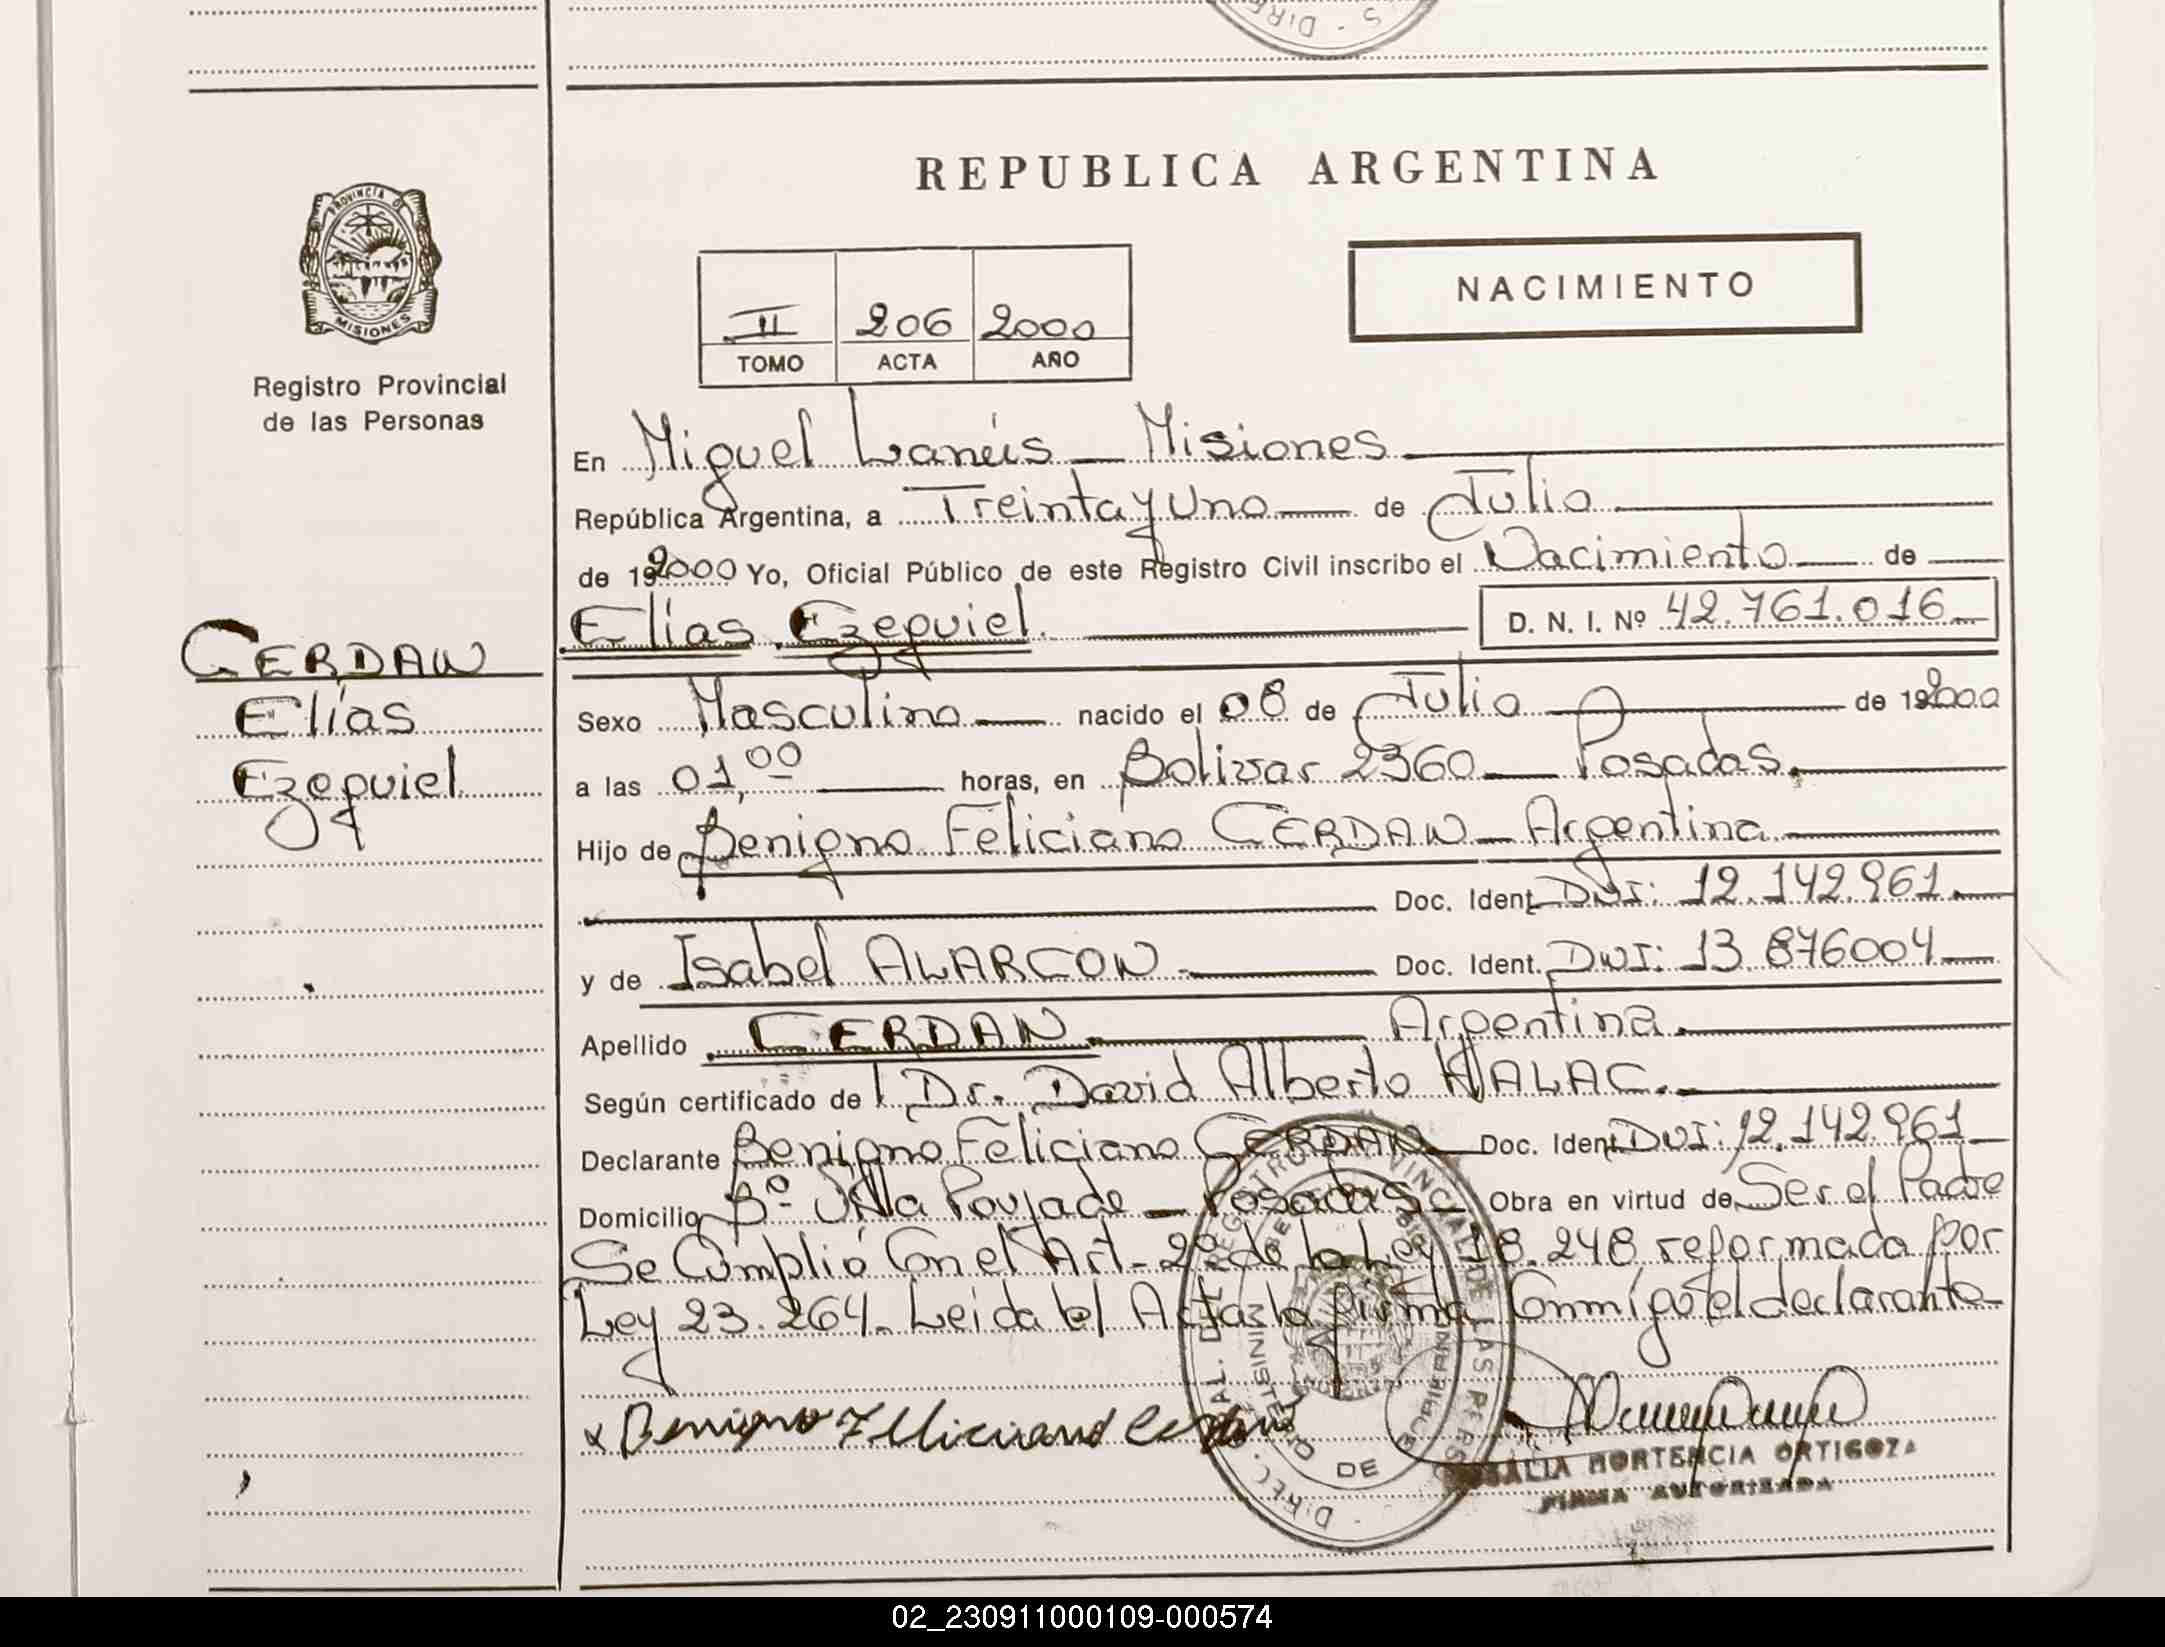 S - DIRE
REPUBLICA ARGENTINA
PROVINCIA DE
MISIONES
Registro Provincial
de las Personas
NACIMIENTO
II 206 2000
TOMO ACTA AÑO
En Miguel Lanús - Misiones
República Argentina, a Treinta y Uno de Julio
de 192000 Yo, Oficial Público de este Registro Civil inscribo el Nacimiento de
Elías Ezequiel. D. N. I. Nº 42.761.016
CERDAN
Elías
Ezequiel
Sexo Masculino nacido el 08 de Julio de 192000
a las 01,00 horas, en Bolivar 2360 - Posadas.
Hijo de Benigno Feliciano CERDAN - Argentina
Doc. Ident. DNI: 12.142.961.
y de Isabel ALARCON Doc. Ident. DNI: 13 876004
Apellido CERDAN Argentina
Según certificado de Dr. David Alberto HALAC.
Declarante Benigno Feliciano CERDAN Doc. Ident. DNI: 12.142.961
Domicilio Bº Villa Poujade - Posadas - Obra en virtud de Ser el Padre
Se Cumplió Con el Art- 2º de la Ley 18.248 reformada por
Ley 23.264. Leida el Acta la firma Conmigo el declarante
x Benigno Feliciano Cerdan
HORTENCIA ORTIGOZA
FIRMA AUTORIZADA
02_230911000109-000574